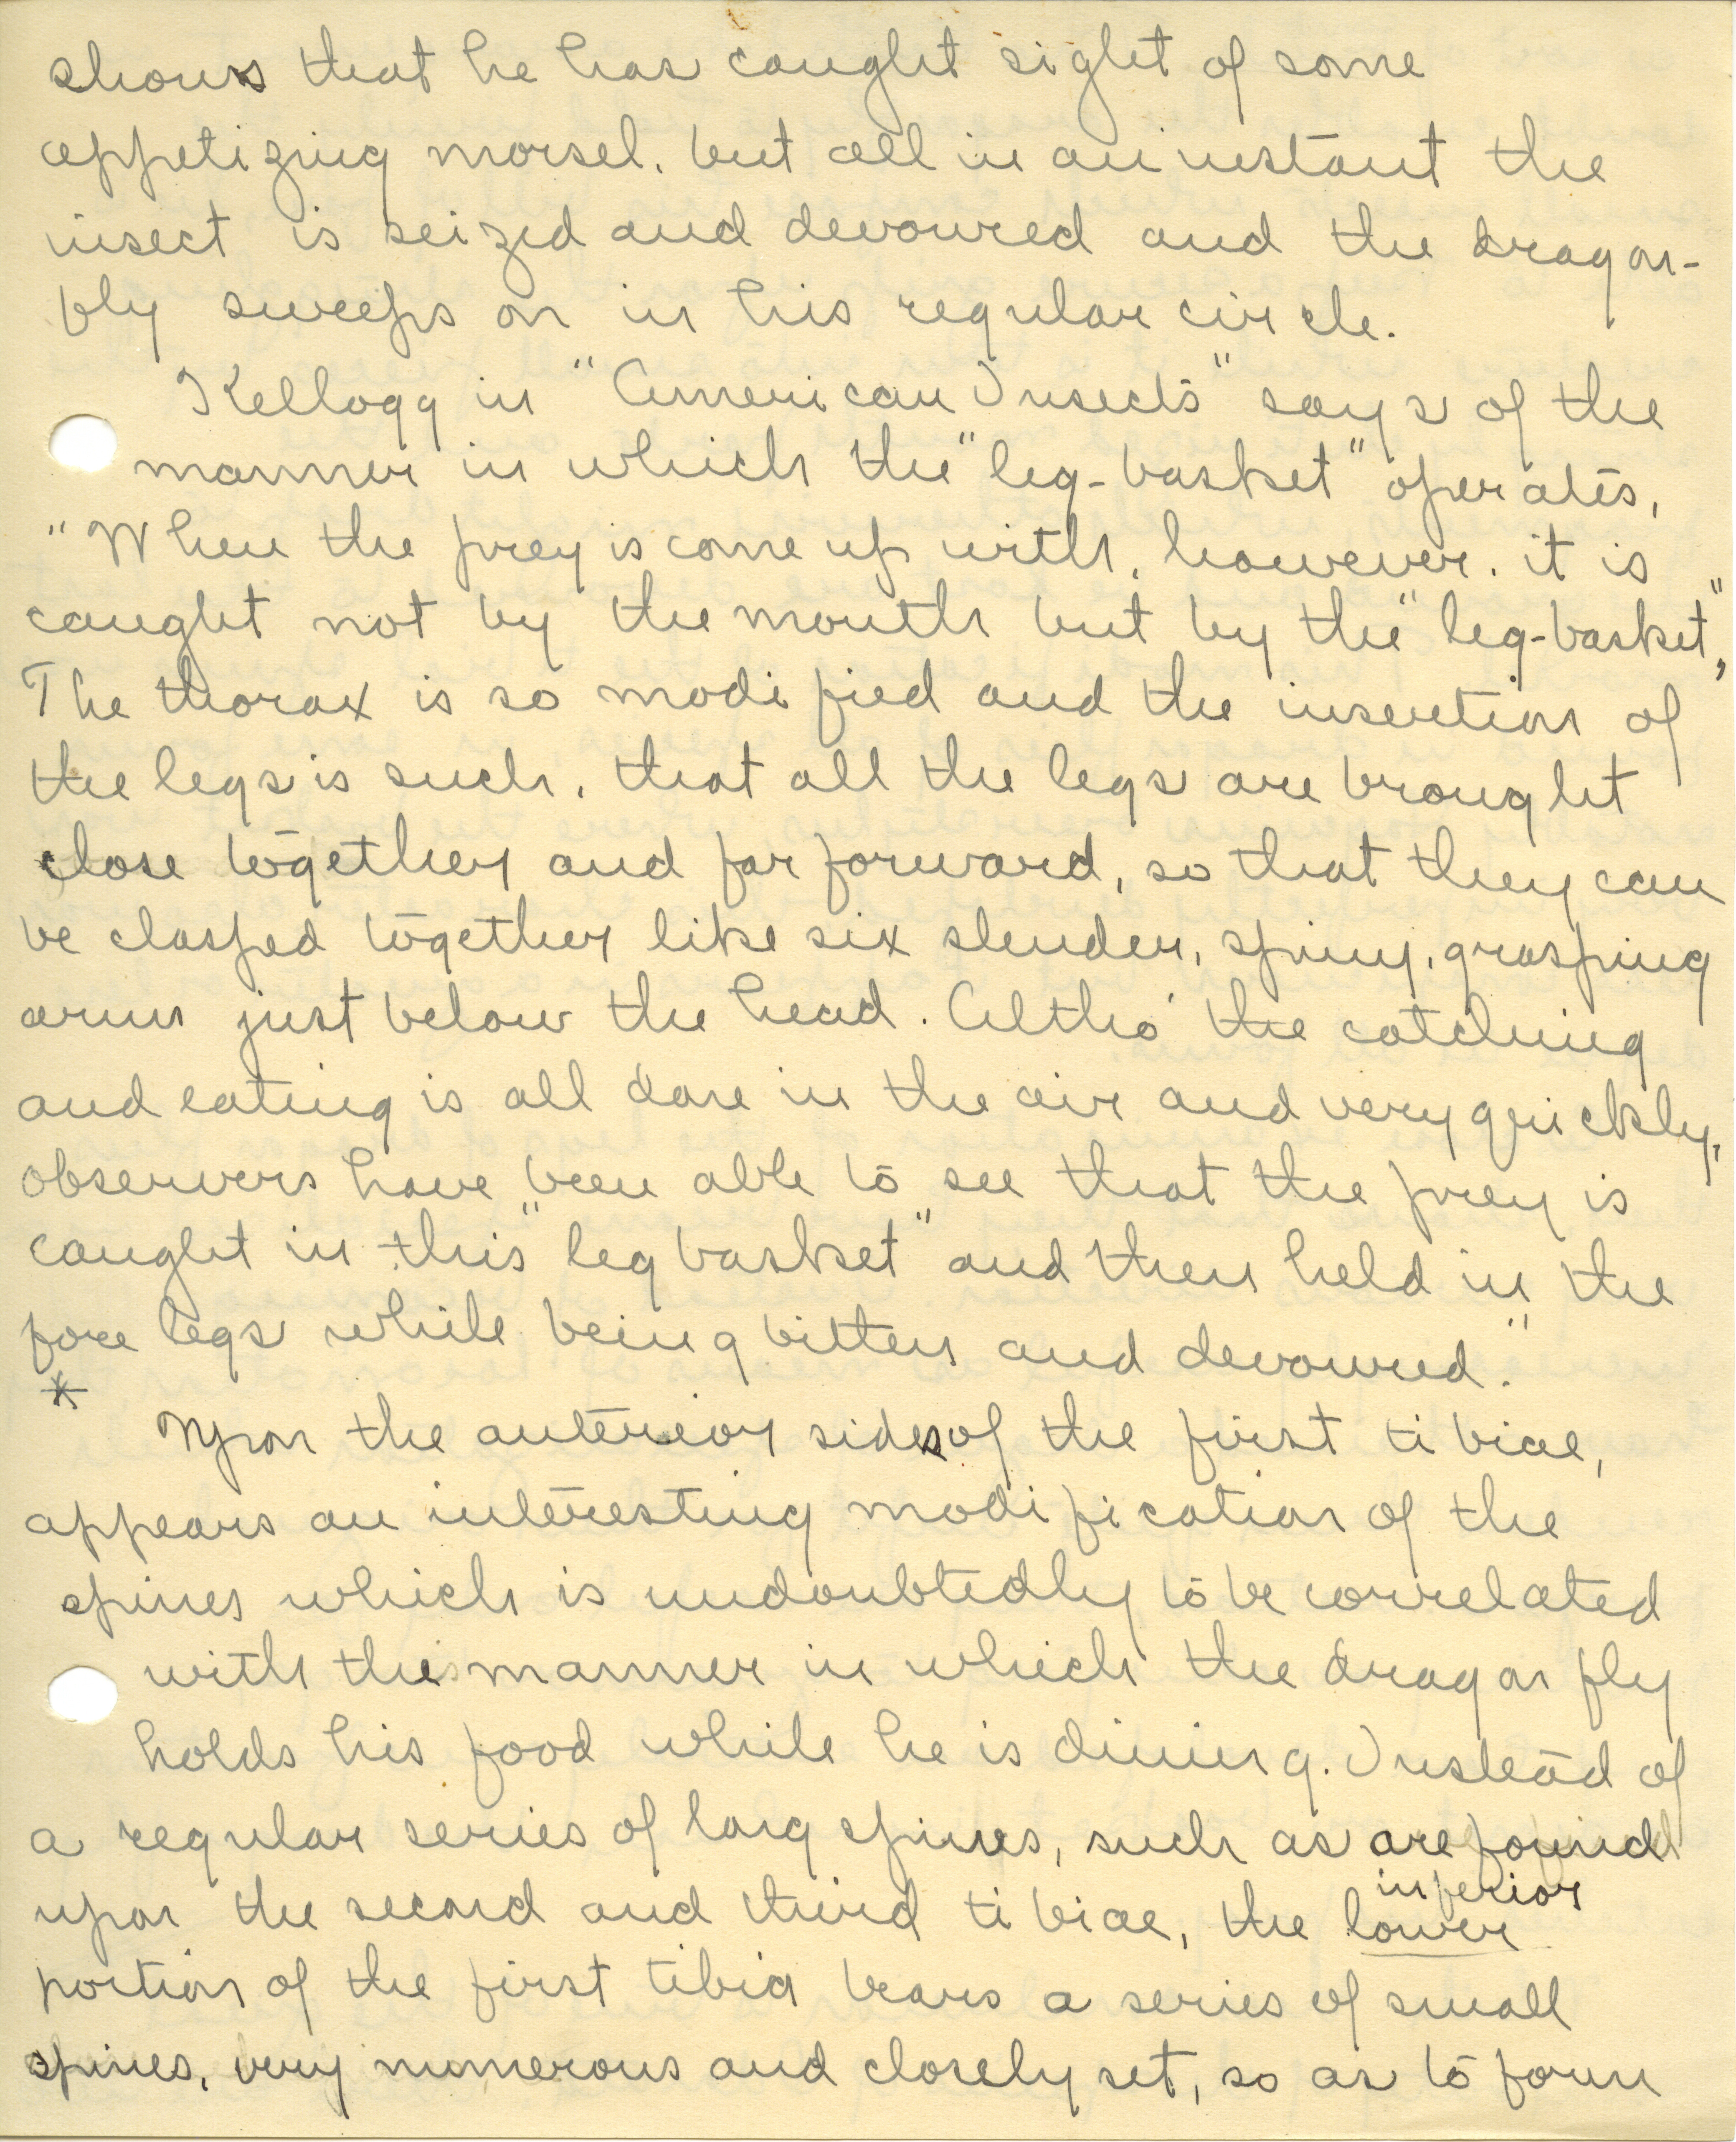 shows that he has caught sight of some
appetizing morsel, but all in an instant the
insect is seized and devoured and the dragon-
fly sweeps on in his regular circle.
Kellogg in "American Insects" says of the
manner in which the "leg-basket" operates,
"When the prey is come up with, however, it is
caught not by the mouth but by the "leg-basket,"
The thorax is so modified and the insertion of
the legs is such, that all the legs are brought
close together and far forward, so that they can
be clasped together like six slender, spiny, grasping
arms just below the head. Altho' the catching
and eating is all done in the air and very quickly,
observers have been able to see that the prey is
caught in this "leg basket" and then held in the
fore legs while being bitten and devoured."
*
Upon the anterior sides of the first tibiae,
appears an interesting modification of the
spines which is undoubtedly to be correlated
with the manner in which the dragon fly
holds his food while he is dining. Instead of
a regular series of long spines, such as are found
inferior
upon the second and third tibiae, the lower
portion of the first tibia bears a series of small
spines, very numerous and closely set, so as to form